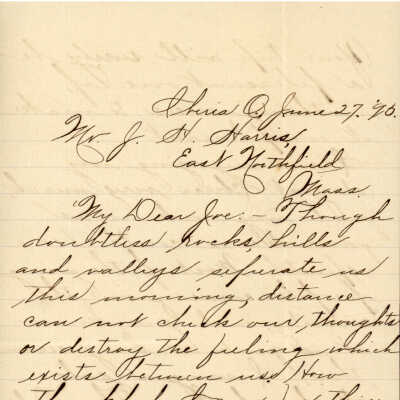 Iberia O. June 27. 90.
Mr. J. H. Harris,
East Northfield
Mass.
My Dear Joe:- Though
doubtless rocks, hills
and valleys seperate us
this morning, distance
can not check our thoughts
or destroy the feeling which
exists between us. How